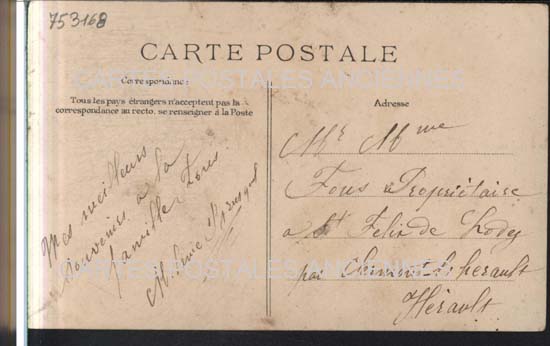 753168
CARTE POSTALE
CARTES POSTALES ANCIENNES
Correspondance
Tous les pays étrangers n'acceptent pas la
correspondance au recto. se renseigner à la Poste
Mes meilleurs
souvenirs a la
famille Fons
Adresse
Mr Mme
Fons Propriétaire
a St Felix de Lodez
par Clermont l. herault
Hérault
CARTES POSTALES ANCIENNES